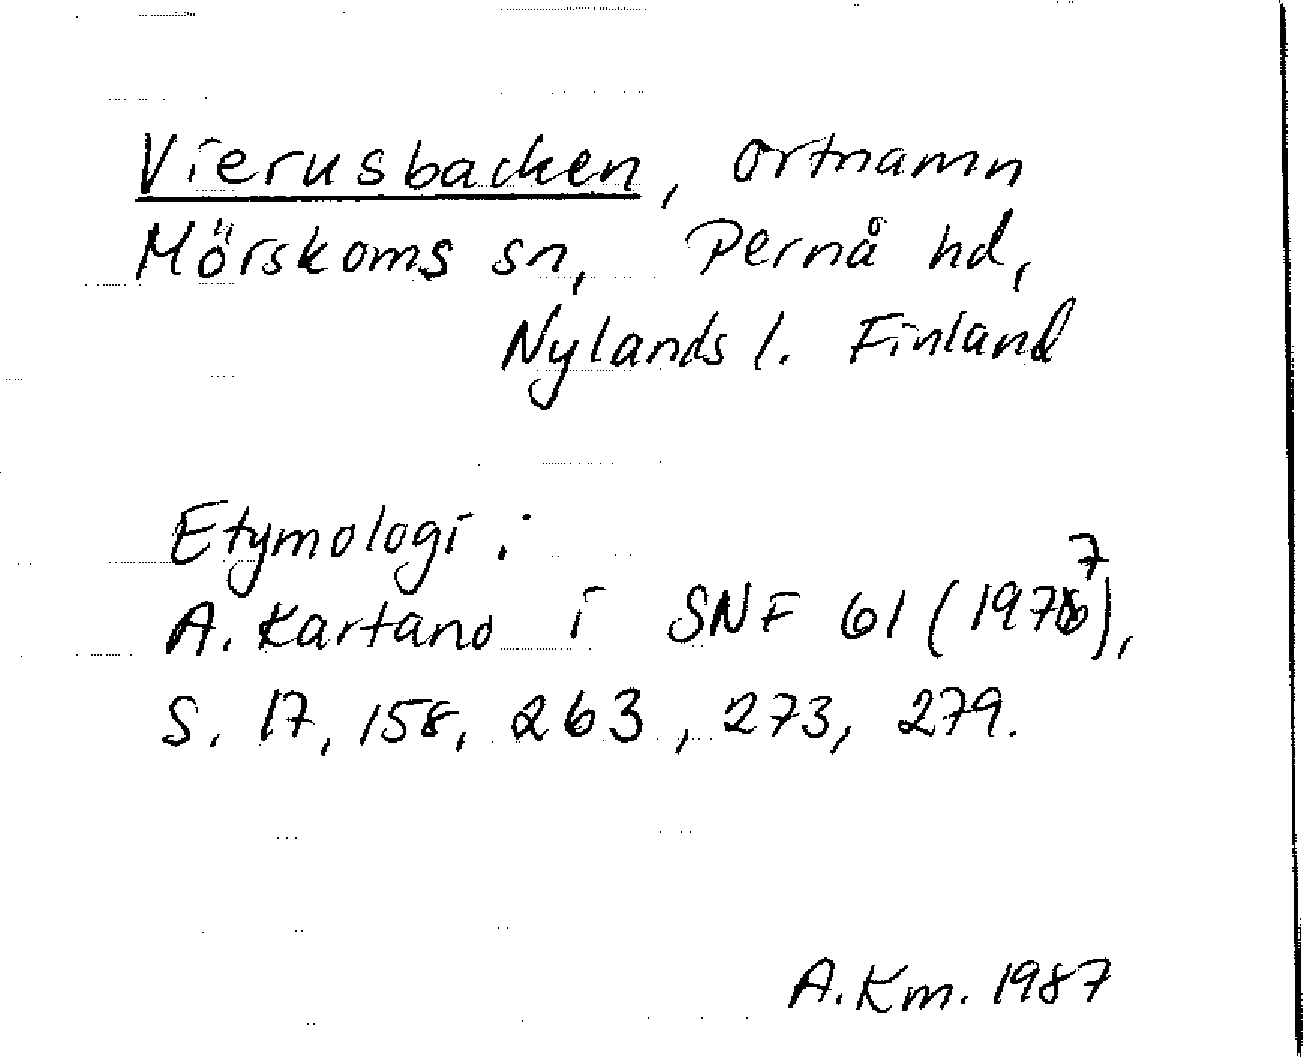 Vierusbacken, ortnamn
Mörskoms sn, Pernå hd,
Nylands l. Finland
Etymologi:
A. Kartano i SNF 61 (1977),
S. 17, 158, 263, 273, 279.
A. Km. 1987